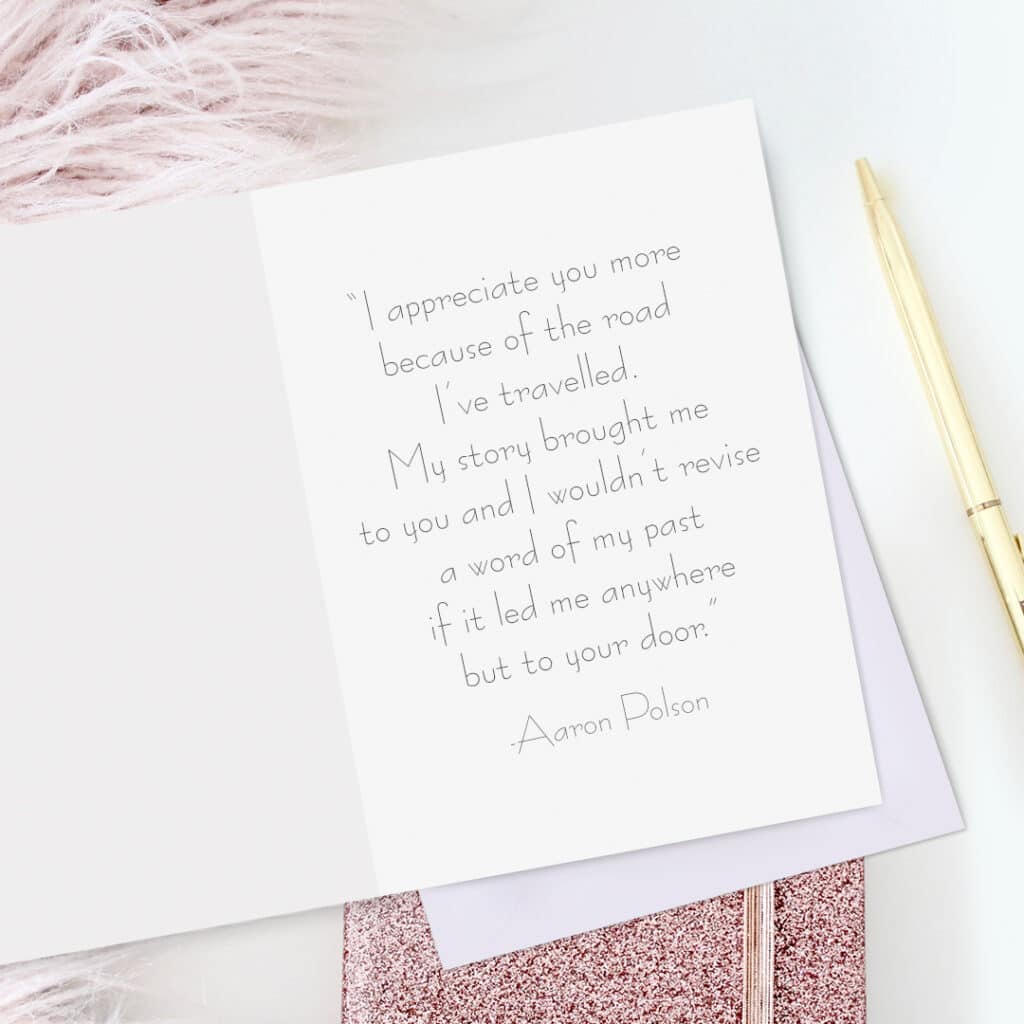 “I appreciate you more
because of the road
I've travelled.
My story brought me
to you and I wouldn't revise
a word of my past
if it led me anywhere
but to your door.”
-Aaron Polson